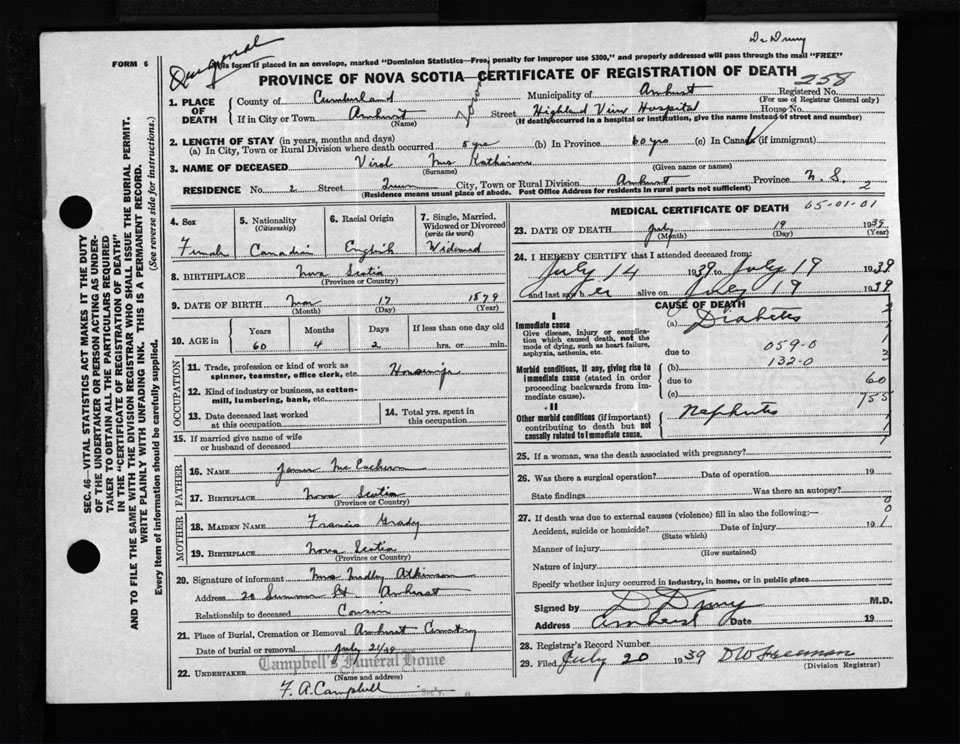 Dr Drury
Original
FORM 6
This form if placed in an envelope, marked "Dominion Statistics—Free, penalty for improper use $300," and properly addressed will pass through the mail "FREE"
PROVINCE OF NOVA SCOTIA—CERTIFICATE OF REGISTRATION OF DEATH
258
1. PLACE OF DEATH
County of Cumberland Municipality of Amherst Registered No.
(For use of Registrar General only)
If in City or Town Amherst (Name) Street Highland View Hospital House No.
(If death occurred in a hospital or institution, give the name instead of street and number)
2. LENGTH OF STAY (in years, months and days)
(a) In City, Town or Rural Division where death occurred 5 yrs (b) In Province 60 yrs (c) In Canada (if immigrant)
3. NAME OF DECEASED Mrs Katharine
(Surname) (Given name or names)
RESIDENCE No. 2 Street City, Town or Rural Division Amherst Province N. S. 2
(Residence means usual place of abode. Post Office Address for residents in rural parts not sufficient)
4. Sex Female
5. Nationality (Citizenship) Canadian
6. Racial Origin English
7. Single, Married, Widowed or Divorced (write the word) Widowed
8. BIRTHPLACE Nova Scotia
(Province or Country)
9. DATE OF BIRTH Mar 17 1879
(Month) (Day) (Year)
10. AGE in Years Months Days If less than one day old
60 4 2 hrs. or min.
OCCUPATION
11. Trade, profession or kind of work as spinner, teamster, office clerk, etc. Housewife
12. Kind of industry or business, as cotton-mill, lumbering, bank, etc.
13. Date deceased last worked at this occupation
14. Total yrs. spent in this occupation
15. If married give name of wife or husband of deceased
FATHER
16. NAME James McEachern
17. BIRTHPLACE Nova Scotia
(Province or Country)
MOTHER
18. MAIDEN NAME Francis Grady
19. BIRTHPLACE Nova Scotia
(Province or Country)
20. Signature of informant Mrs Atkinson
Address 20 Summer St Amherst
Relationship to deceased Cousin
21. Place of Burial, Cremation or Removal Amherst Cemetery
Date of burial or removal July 21/39
Campbell's Funeral Home
22. UNDERTAKER
(Name and address)
F. A. Campbell
MEDICAL CERTIFICATE OF DEATH 65-01-01
23. DATE OF DEATH July 19 1939
(Month) (Day) (Year)
24. I HEREBY CERTIFY that I attended deceased from:
July 14 1939 to July 19 1939
and last saw her alive on July 19 1939
CAUSE OF DEATH
I
Immediate cause
Give disease, injury or complication which caused death, not the mode of dying, such as heart failure, asphyxia, asthenia, etc.
(a) Diabetes
due to 059-0
Morbid conditions, if any, giving rise to immediate cause (stated in order proceeding backwards from immediate cause).
(b) 132-0
due to 60
(c) 155
II
Other morbid conditions (if important) contributing to death but not causally related to immediate cause.
Nephritis
25. If a woman, was the death associated with pregnancy?
26. Was there a surgical operation? Date of operation 19
State findings Was there an autopsy?
27. If death was due to external causes (violence) fill in also the following:—
Accident, suicide or homicide? Date of injury 19
(State which)
Manner of injury
(How sustained)
Nature of injury
Specify whether injury occurred in industry, in home, or in public place
Signed by D Drury M.D.
Address Amherst Date 19
28. Registrar's Record Number
29. Filed July 20 1939 DW Freeman
(Division Registrar)
SEC. 46—VITAL STATISTICS ACT MAKES IT THE DUTY
OF THE UNDERTAKER OR PERSON ACTING AS UNDER-
TAKER TO OBTAIN ALL THE PARTICULARS REQUIRED
IN THE "CERTIFICATE OF REGISTRATION OF DEATH"
AND TO FILE THE SAME WITH THE DIVISION REGISTRAR WHO SHALL ISSUE THE BURIAL PERMIT.
WRITE PLAINLY WITH UNFADING INK. THIS IS A PERMANENT RECORD.
Every item of information should be carefully supplied. (See reverse side for instructions.)